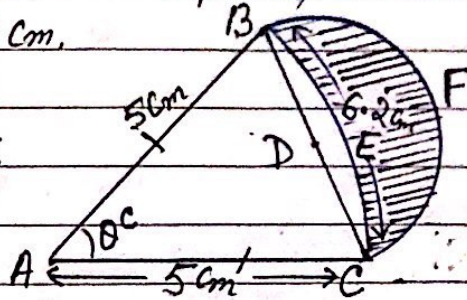 cm.
B
F
5cm
6.2cm
D
E
θᶜ
A
5cm
C